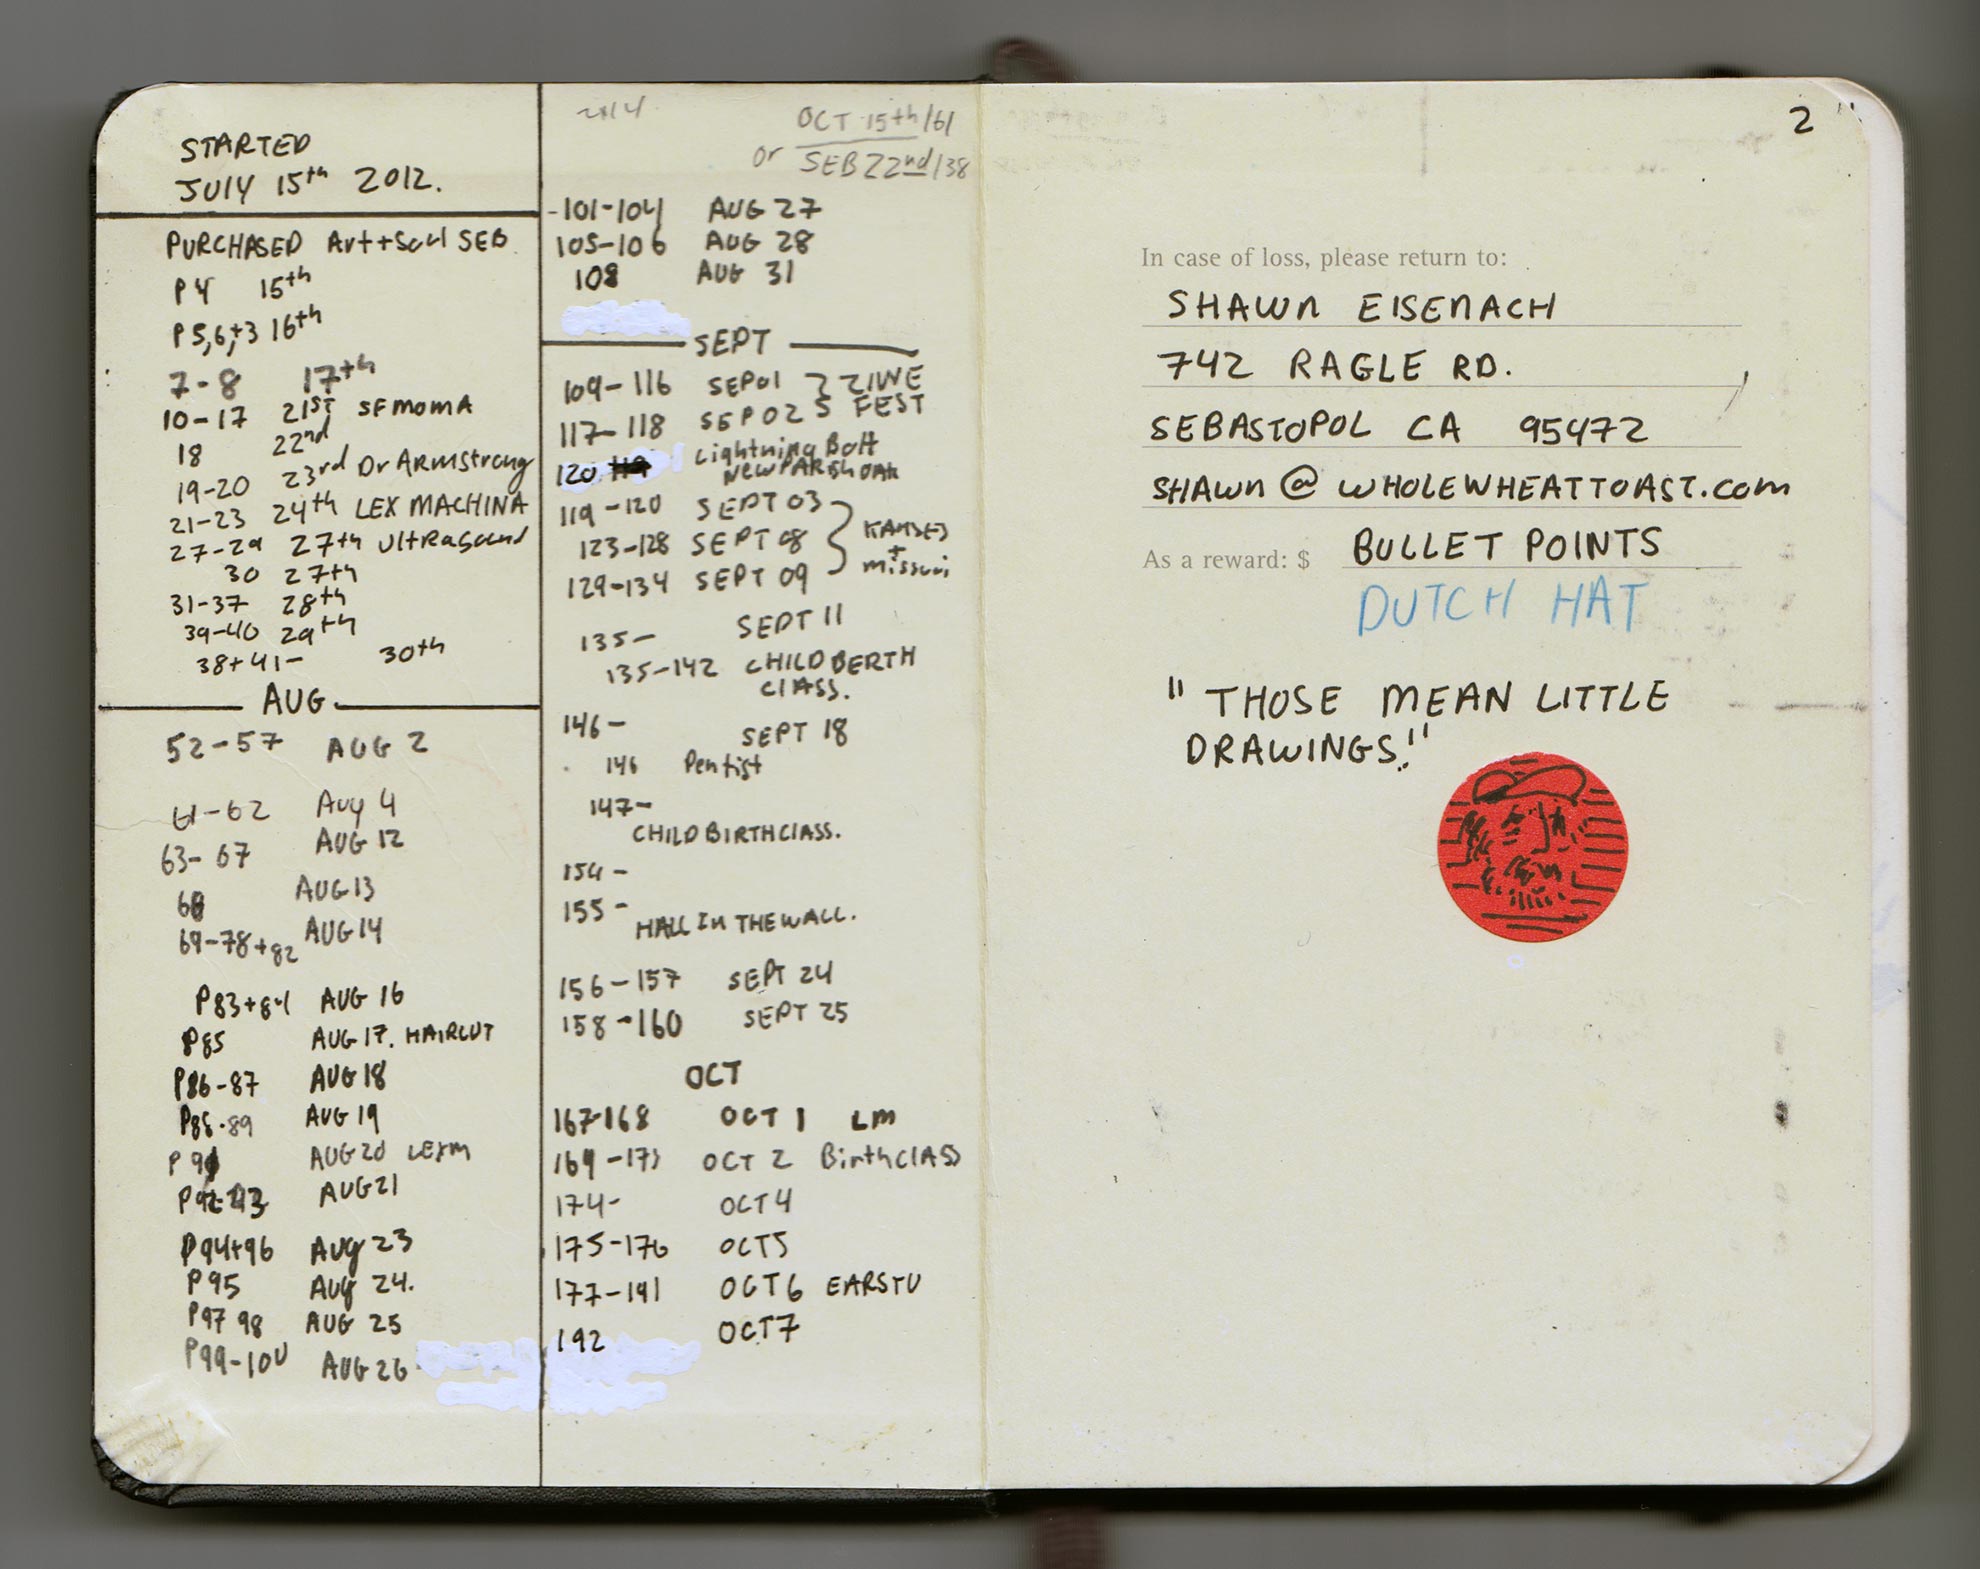 STARTED
JULY 15th 2012.
PURCHASED Art+Soul SEB
P4 15th
P5,6,+3 16th
7-8 17th
10-17 21ST SFMOMA
18 22nd
19-20 23rd Dr ARMstrong
21-23 24th LEX MACHINA
27-29 27th Ultrasound
30 27th
31-37 28th
39-40 29th
38+41- 30th
AUG
52-57 AUG 2
61-62 Aug 4
63-67 AUG 12
68 AUG 13
69-78+82 AUG 14
P83+84 AUG 16
P85 AUG 17. HAIRCUT
P86-87 AUG 18
P88-89 AUG 19
AUG 20 LEXM
AUG 21
P94+96 Aug 23
P95 Aug 24.
P97 98 AUG 25
P99-100 AUG 26
OCT 15th/161
or SEB 22nd/138
-101-104 AUG 27
105-106 AUG 28
108 AUG 31
SEPT
109-116 SEP01 ZINE
117-118 SEP02 FEST
120 Lightning Bolt
NEW PARISH OAK
119-120 SEPT 03
123-128 SEPT 08 KANSES
+
129-134 SEPT 09 missouri
135- SEPT 11
135-142 CHILD BERTH
CLASS.
146- SEPT 18
146 Dentist
147-
CHILD BIRTH CLASS.
154-
155- HALL IN THE WALL.
156-157 SEPT 24
158-160 SEPT 25
OCT
167-168 OCT 1 LM
169-173 OCT 2 Birth CLASS
174- OCT 4
175-176 OCT5
177-191 OCT 6 EARSTU
192 OCT7
2
In case of loss, please return to:
SHAWN EISENACH
742 RAGLE RD.
SEBASTOPOL CA 95472
SHAWN@WHOLEWHEATTOAST.com
As a reward: $ BULLET POINTS
DUTCH HAT
"THOSE MEAN LITTLE
DRAWINGS!"